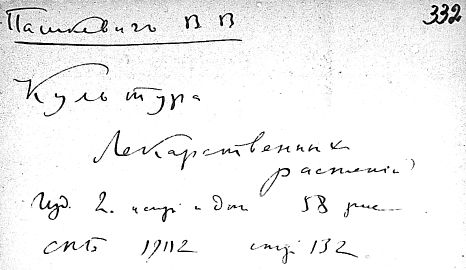 332
Пашкевичъ В В
Культура
Лекарственных
растений
Изд. 2. испр и доп 58 рис
СПБ 1912 стр 132